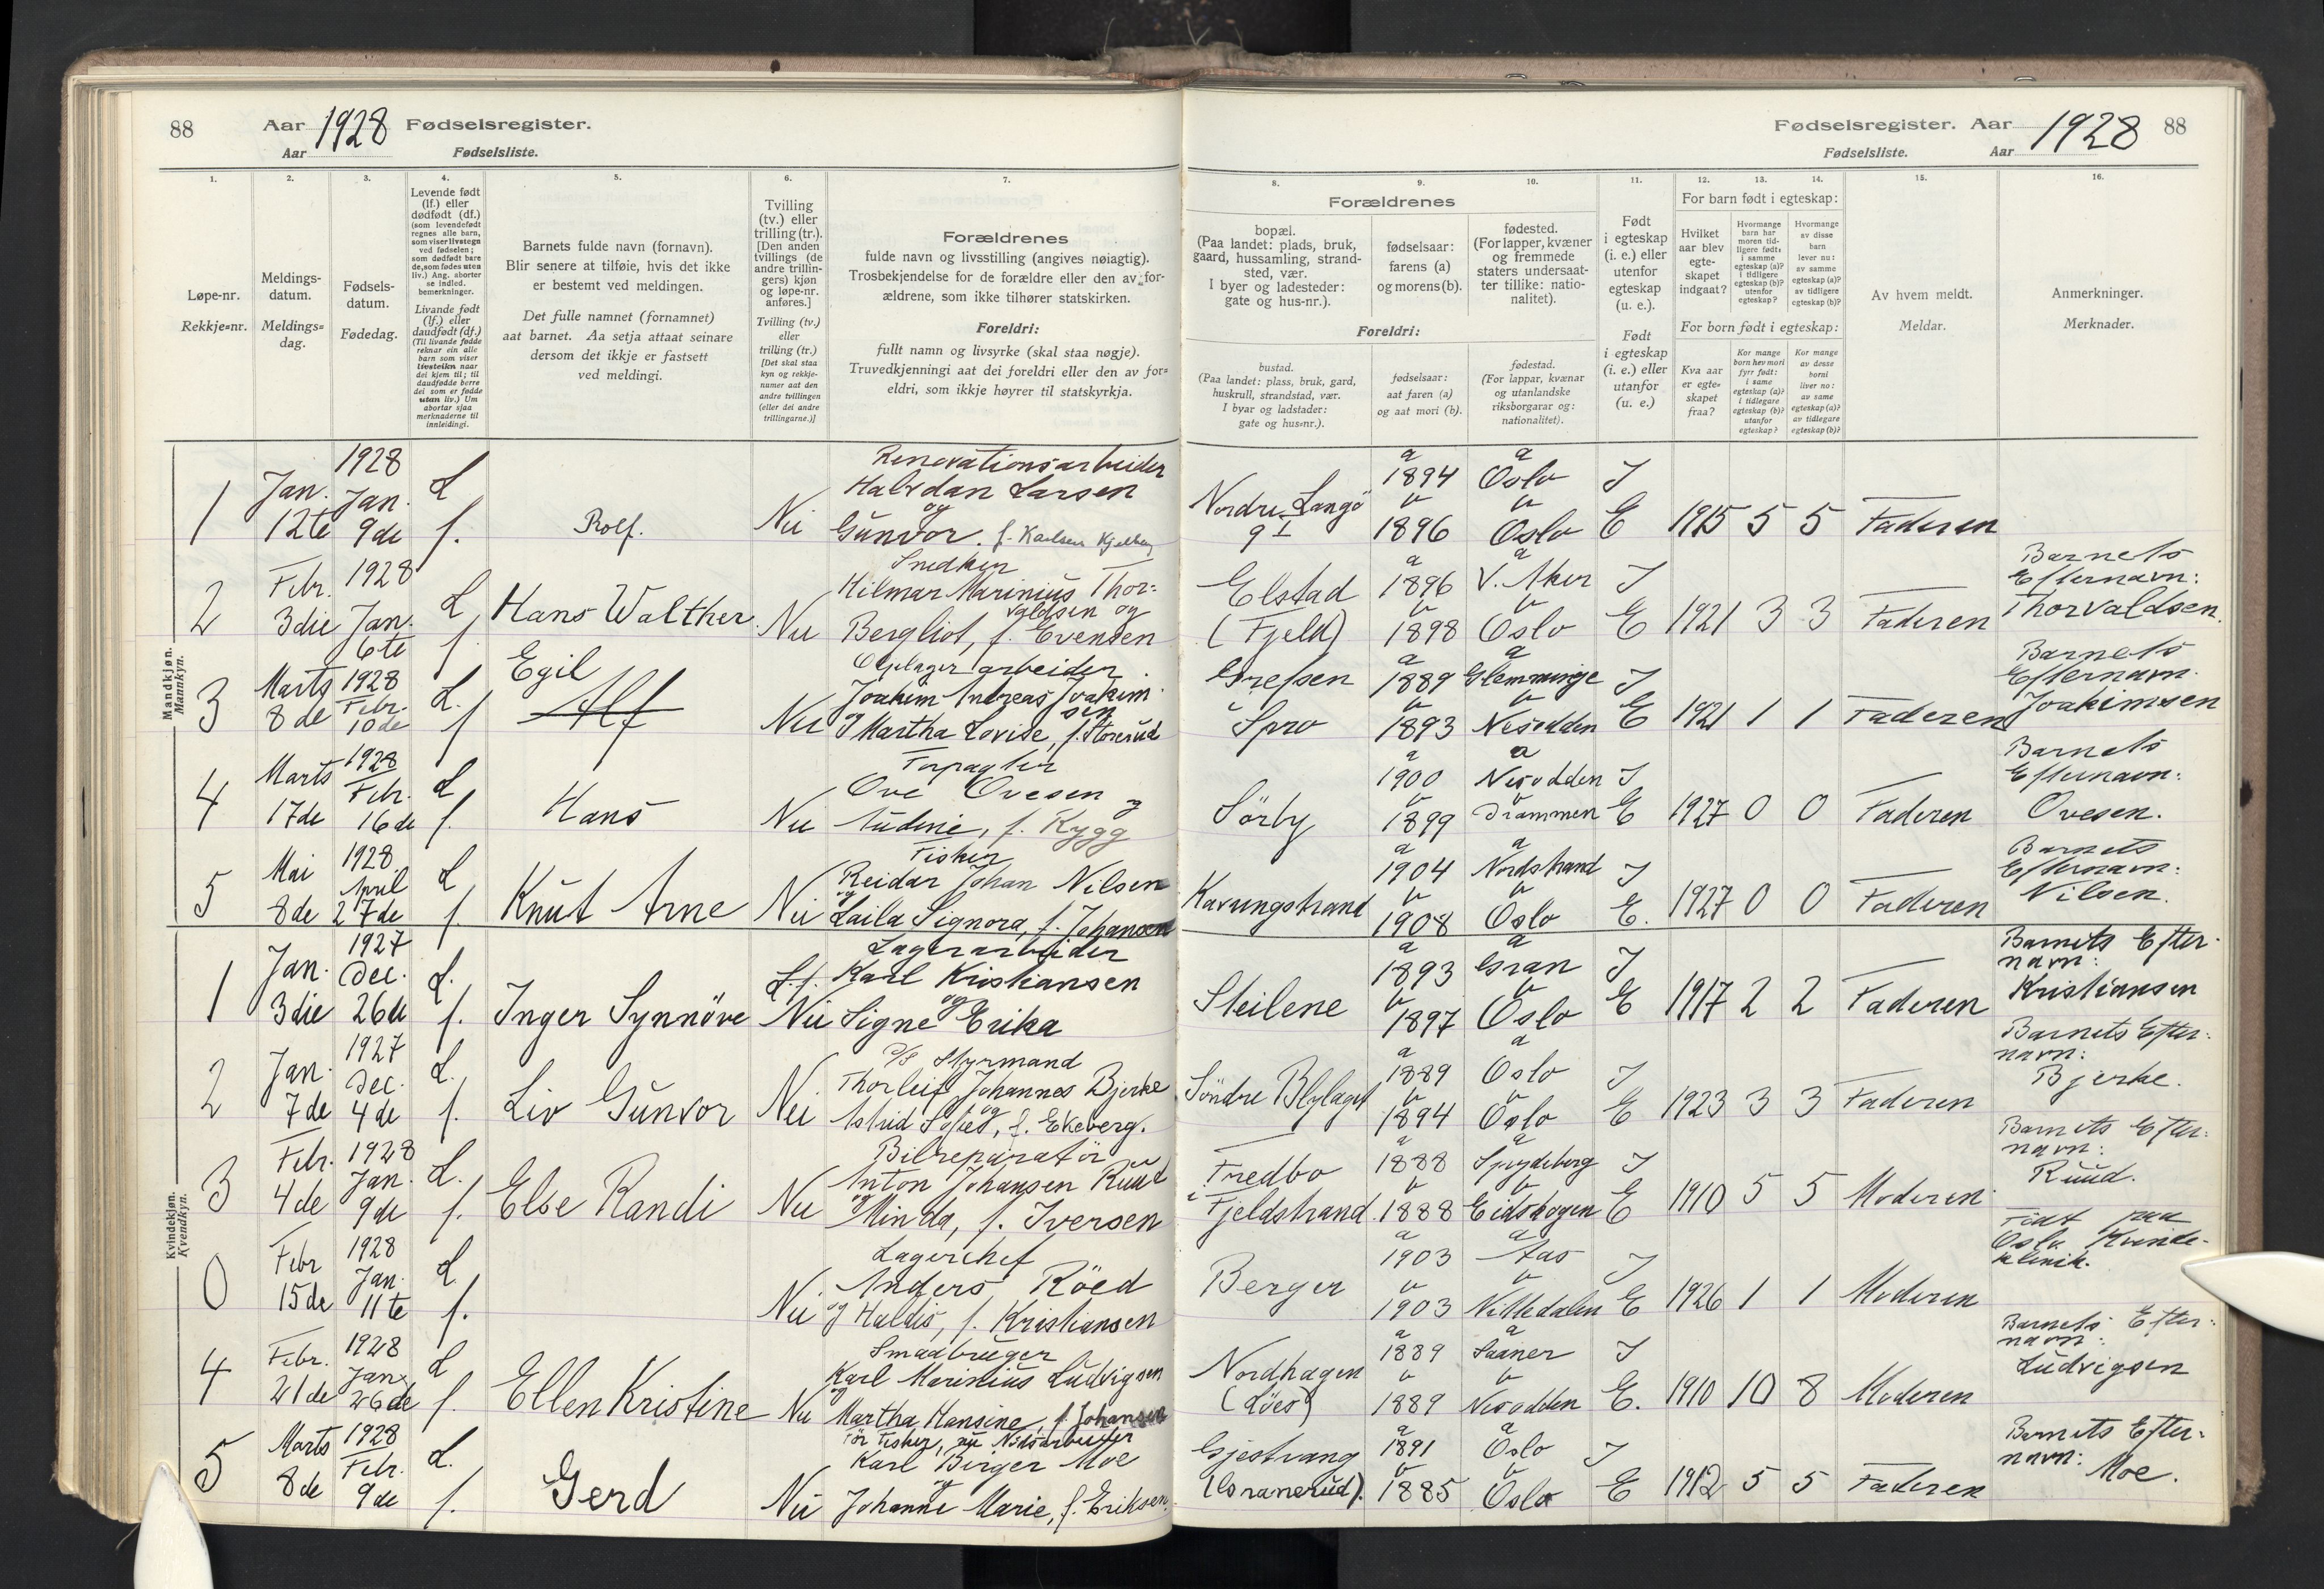 88 Aar 1928 Fødselsregister.
Aar Fødselsliste.
1.
2.
3.
4.
5.
6.
7.
Løpe-nr.
Rekkje=nr.
Meldings-
datum.
Meldings=
dag.
Fødsels-
datum.
Fødedag.
Levende født
(lf.) eller
dødfødt (df.)
(som levendefødt
regnes alle barn,
som viser livstegn
ved fødselen;
som dødfødt bare
de, som fødes uten
liv.) Ang. aborter
se indled.
bemerkninger.
Livande født
(lf.) eller
daudfødt (df.)
(Til livande fødde
reknar ein alle
barn som viser
livsteikn naar
dei kjem til; til
daudfødde berre
dei som er fødde
utan liv.) Um
abortar sjaa
merknaderne til
innleidingi.
Barnets fulde navn (fornavn).
Blir senere at tilføie, hvis det ikke
er bestemt ved meldingen.
Det fulle namnet (fornamnet)
aat barnet. Aa setja attaat seinare
dersom det ikkje er fastsett
ved meldingi.
Tvilling
(tv.) eller
trilling (tr.).
[Den anden
tvillings (de
andre trillin-
gers) kjøn
og løpe-nr.
anføres.]
Tvilling (tv.)
eller
trilling (tr.)
[Det skal staa
kyn og rekkje-
numer aat den
andre tvillingen
(eller dei andre
trillingarne.)]
Forældrenes
fulde navn og livsstilling (angives nøiagtig).
Trosbekjendelse for de forældre eller den av for-
ældrene, som ikke tilhører statskirken.
Foreldri:
fullt namn og livsyrke (skal staa nøgje).
Truvedkjenningi aat dei foreldri eller den av for=
eldri, som ikkje høyrer til statskyrkja.
Mandkjøn.
Mannkyn.
1
Jan.
12te
1928
Jan.
9de
L
f.
Rolf.
Nei
Renovationsarbeider
Halvdan Larsen
og
Gunvor. f. Karlsen
2
Febr.
3die
1928
Jan.
6te
L
f
Hans Walther
Nei
Snedker
Hilmar Marinius Thor=
valdsen og
Bergliot, f. Evensen
3
Marts
8de
1928
Febr.
10de
L.
f
Egil
Alf
Nei
arbeider
Joakim Andreas Joakim
sen
og Martha Lovise, f. Storerud
4
Marts
17de
1928
Febr.
16de
L
f.
Hans
Nei
Forpagter
Ove Ovesen
og
f. Rygg
5
Mai
8de
1928
April
27de
L
f.
Knut Arne
Nei
Fisker
Reidar Johan Nilsen
og
Laila Signora, f. Johansen
Kvindekjøn.
Kvendkyn.
1
Jan.
3die
1927
Dec.
26de
L.
f.
Inger Synnöve
L.f.
Nei
Lagerarbeider
Karl Kristiansen
og
Signe Erika
2
Jan.
7de
1927
Dec.
4de
L.
f.
Liv Gunvor
Nei
Styrmand
Thorleif Johannes Bjerke
og
Astrid Sofie, f. Ekeberg.
3
Febr.
4de
1928
Jan.
9de
L.
f.
Else Randi
Nei
Bilreparatör
Anton Johansen Ruud
og
Minda, f. Iversen
0
Febr
15de
1928
Jan.
11te
L
f.
Nei
Lagerchef
Anders Röed
og Haldis, f. Kristiansen
4
Febr.
21de
1928
Jan.
26de
L
f.
Ellen Kristine
Nei
Smaabruger
Karl Marinius Ludvigsen
og
Martha Hansine, f. Johansen
5
Marts
8de
1928
Febr.
9de
L.
f.
Gerd
Nei
før Fisker, nu Nödsarbeider
Karl Birger Moe
og
Johanne Marie, f. Eriksen.
Fødselsregister. Aar 1928 88
Fødselsliste. Aar
8.
9.
10.
11.
12.
13.
14.
15.
16.
Forældrenes
bopæl.
(Paa landet: plads, bruk,
gaard, hussamling, strand-
sted, vær.
I byer og ladesteder:
gate og hus-nr.).
fødselsaar:
farens (a)
og morens (b).
fødested.
(For lapper, kvæner
og fremmede
staters undersaat-
ter tillike: natio-
nalitet).
Foreldri:
bustad.
(Paa landet: plass, bruk, gard,
huskrull, strandstad, vær.
I byar og ladstader:
gate og hus=nr.).
fødselsaar:
aat faren (a)
og aat mori (b).
fødestad.
(For lappar, kvænar
og utanlandske
riksborgarar og:
nationalitet).
Født
i egteskap
(i. e.) eller
utenfor
egteskap
(u. e.).
Født
i egteskap
(i. e.) eller
utanfor
(u. e.)
For barn født i egteskap:
Hvilket
aar blev
egte-
skapet
indgaat?
Hvormange
barn har
moren tid-
ligere født:
i samme
egteskap (a)?
i tidligere
egteskap (b)?
utenfor
egteskap?
Hvormange
av disse
barn
lever nu:
av samme
egteskap (a)?
av tidligere
egteskap (b)?
For born født i egteskap:
Kva aar
er egte=
skapet
fraa?
Kor mange
born hev mori
fyrr født:
i same
egteskap (a)?
i tidlegare
egteskap (b)?
utanfor
egteskap?
Kor mange
av desse
borni
liver no:
av same
egteskap (a)?
av tidlegare
egteskap (b)?
Av hvem meldt.
Meldar.
Anmerkninger.
Merknader.
Nordre Langö
9 I
a
1894
b
1896
a
Oslo
b
Oslo
I
E
1915 5 5 Faderen
Elstad
(Fjeld)
a
1896
b
1898
a
V. Aker
b
Oslo
I
E
1921 3 3 Faderen
Barnets
Efternavn:
Thorvaldsen.
Grefsen
Spro
a
1889
b
1893
a
Glemminge
b
Nesodden
I
E
1921 1 1 Faderen
Barnets
Efternavn.
Joakimsen
Sörby
a
1900
b
1899
a
Nesodden
b
Drammen
I
E
1927 0 0 Faderen
Barnets
Efternavn:
Ovesen.
Kavungstrand
a
1904
b
1908
a
Nordstrand
b
Oslo
I
E.
1927 0 0 Faderen
Barnets
Efternavn:
Nilsen.
Steilene
a
1893
b
1897
a
Gran
b
Oslo
I
E
1917 2 2 Faderen
Barnets Efter-
navn:
Kristiansen
Söndre Blylaget
a
1889
b
1894
a
Oslo
b
Oslo
I
E
1923 3 3 Faderen
Barnets Efter-
navn:
Bjerke.
Fredbo
i Fjeldstrand
a
1888
b
1888
a
Spydeberg
b
Eidskogen
I
E
1910 5 5 Moderen
Barnets Efter-
navn:
Ruud.
Berger
a
1903
b
1903
a
Aas
b
Nittedalen
I
E
1926 1 1 Moderen
Födt paa
Oslo Kvinde-
klinik.
Nordhagen
a
1889
b
1889
a
Saaner
b
Nesodden
I
E.
1910 10 8 Moderen
Barnets Efter-
navn:
Ludvigsen
Gjestvang
(Granerud).
a
1891
b
1885
a
Oslo
b
Oslo
I
E
1912 5 5 Faderen
Barnets Efter-
navn:
Moe.